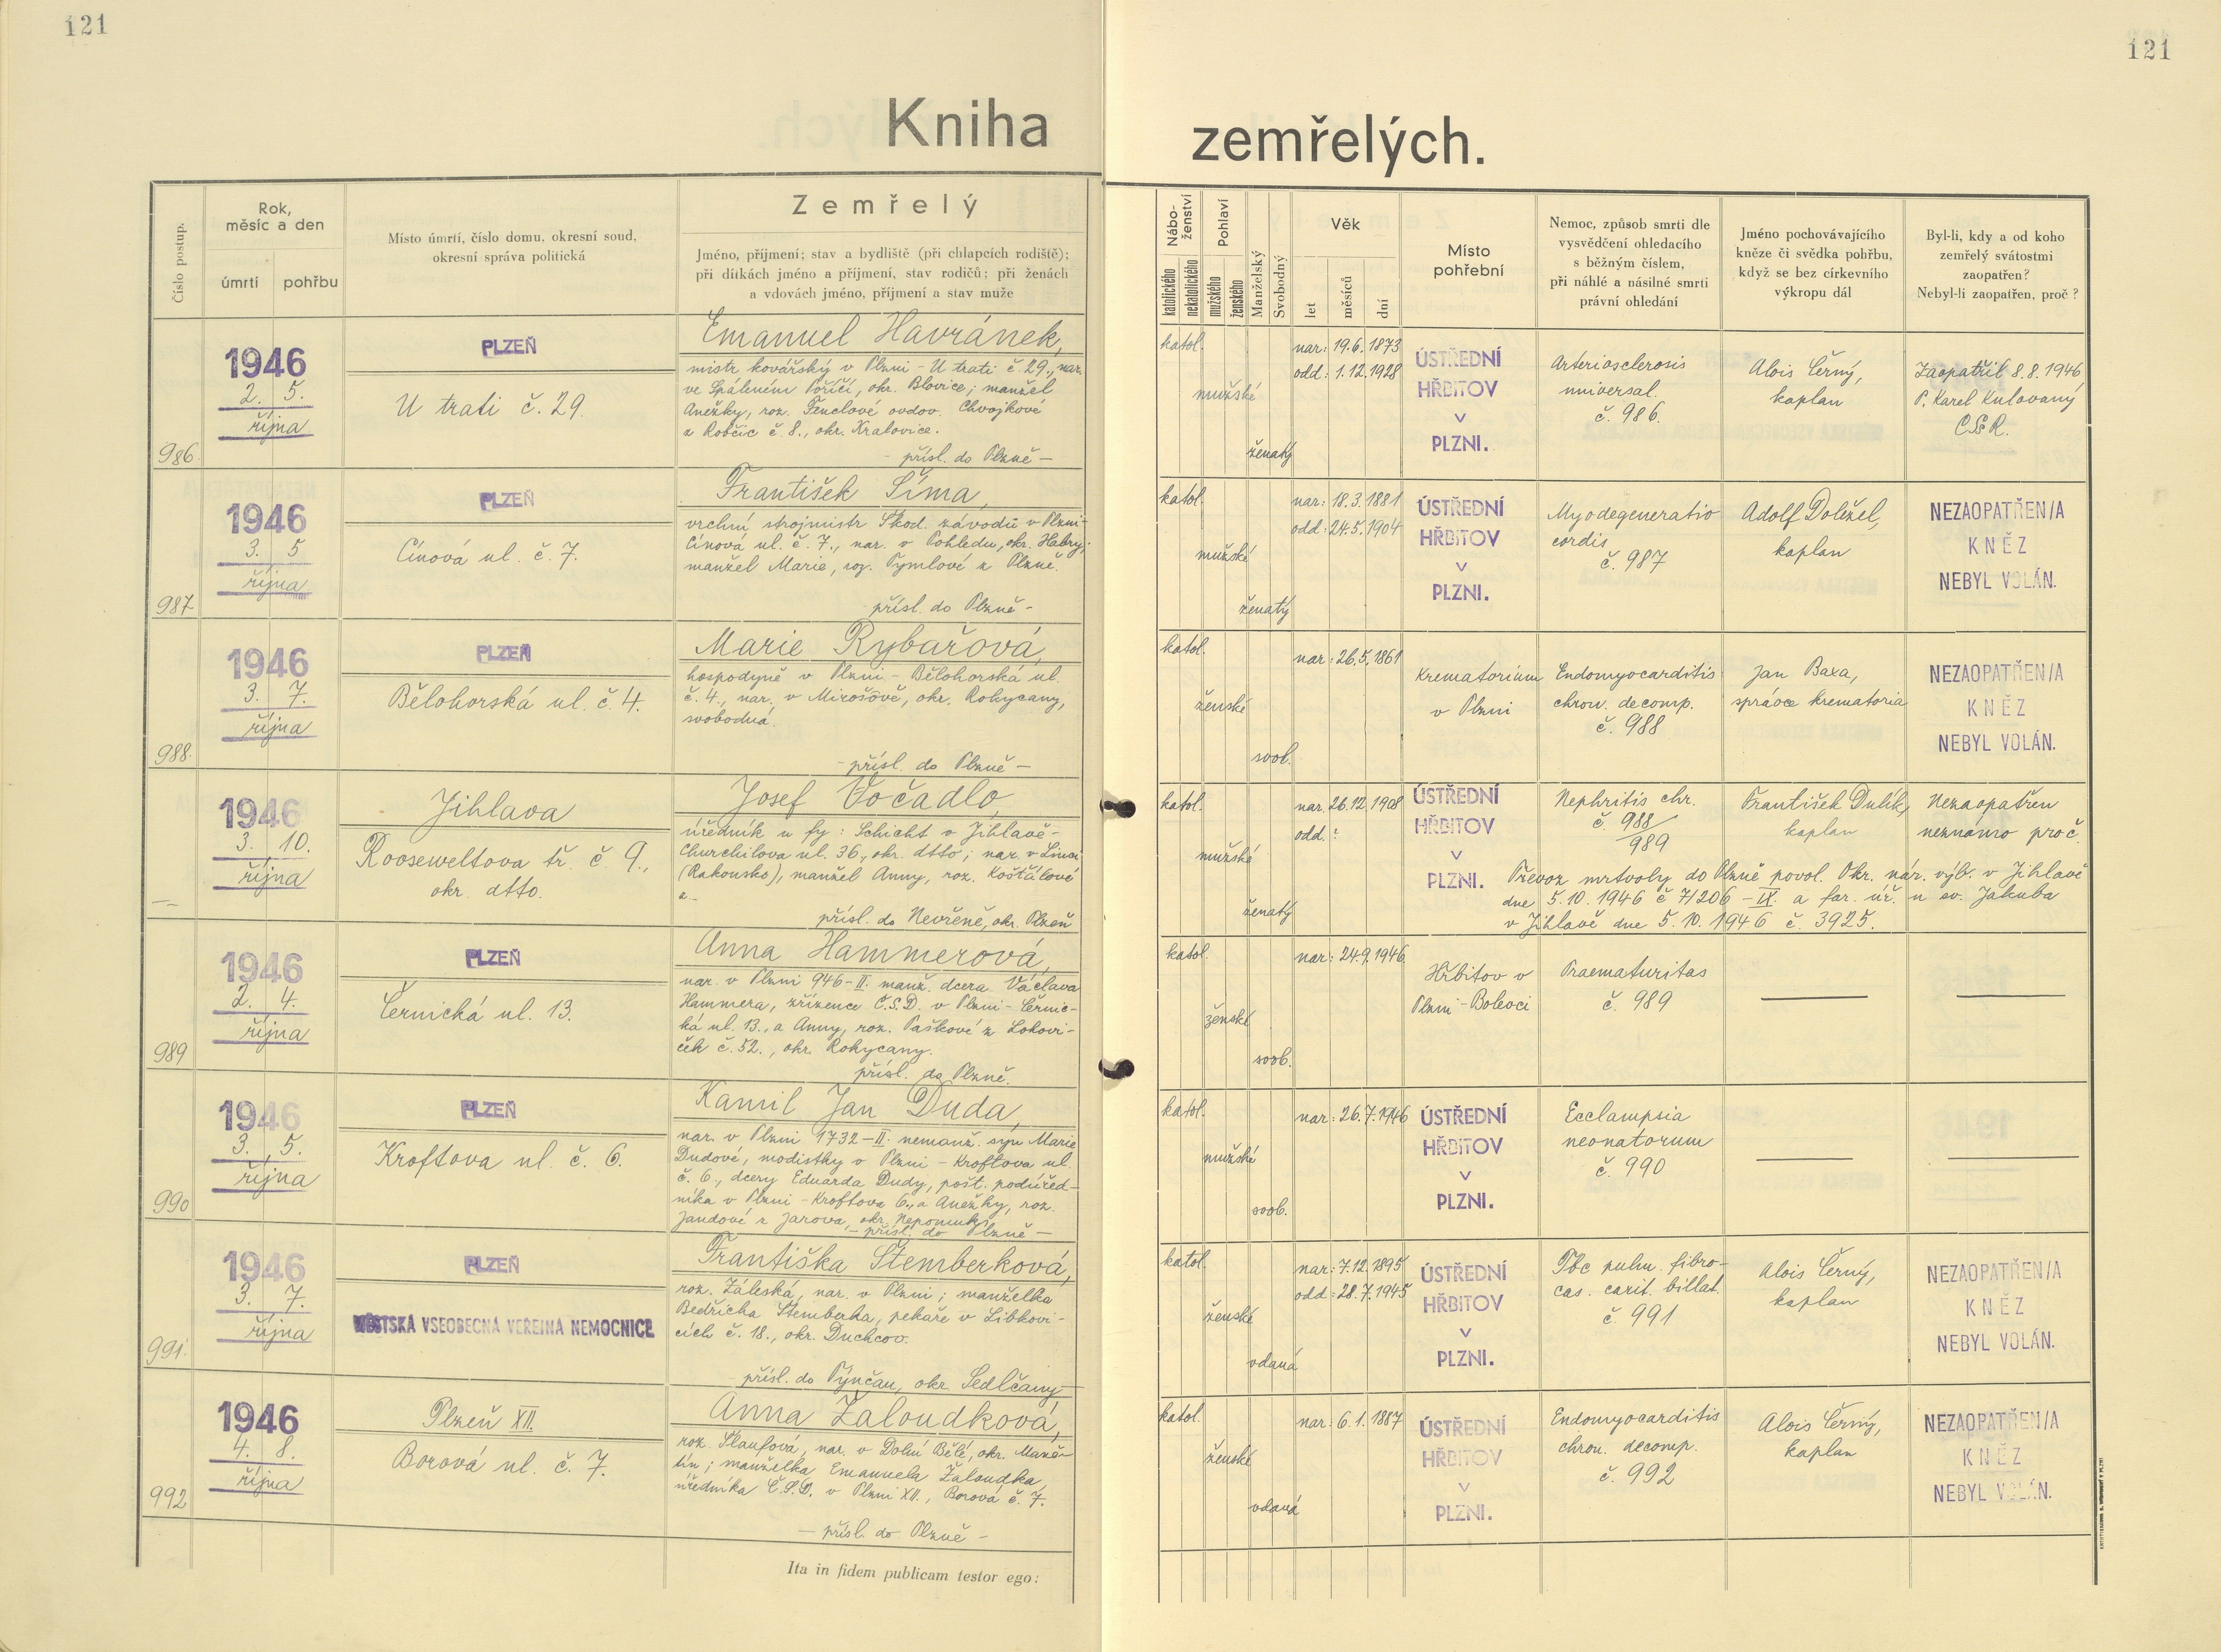 121
121
Kniha zemřelých.
Číslo postup.
Rok,
měsíc a den
úmrtí
pohřbu
Místo úmrtí, číslo domu, okresní soud,
okresní správa politická
Zemřelý
Jméno, příjmení; stav a bydliště (při chlapcích rodiště);
při dítkách jméno a příjmení, stav rodičů; při ženách
a vdovách jméno, příjmení a stav muže
Nábo-
ženství
katolického
nekatolického
Pohlaví
mužského
ženského
Manželský
Svobodný
Věk
let
měsíců
dní
Místo
pohřební
Nemoc, způsob smrti dle
vysvědčení ohledacího
s běžným číslem,
při náhlé a násilné smrti
právní ohledání
Jméno pochovávajícího
kněze či svědka pohřbu,
když se bez církevního
výkropu dál
Byl-li, kdy a od koho
zemřelý svátostmi
zaopatřen?
Nebyl-li zaopatřen, proč?
986.
1946
2. 5.
října
PLZEŇ
U trati č. 29.
Emanuel Havránek,
mistr kovářský v Plzni - U trati č. 29., nar.
ve Spáleném Poříčí, okr. Blovice; manžel
Anežky, roz. Fenclové ovdov. Chvojkové
z Robčic č. 8., okr. Kralovice.
- přísl. do Plzně -
katol.
mužské
ženatý
nar: 19.6.1873
odd: 1.12.1928
ÚSTŘEDNÍ
HŘBITOV
V
PLZNI.
Arteriosclerosis
universal.
č. 986.
Alois Černý,
kaplan
Zaopatřil 8.8.1946
P. Karel Kulovaný
CSsR.
987
1946
3. 5
října
PLZEŇ
Cínová ul. č. 7.
František Šíma,
vrchní strojmistr Škod. závodů v Plzni-
Cínová ul. č. 7., nar. v Pohledu, okr. Habry;
manžel Marie, roz. Tymlové z Plzně.
- přísl. do Plzně -
katol.
mužské
ženatý
nar: 18.3.1881
odd: 24.5.1904
ÚSTŘEDNÍ
HŘBITOV
V
PLZNI.
Myodegeneratio
cordis
č. 987
Adolf Doležel,
kaplan
NEZAOPATŘEN/A
KNĚZ
NEBYL VOLÁN.
988.
1946
3. 7.
října
PLZEŇ
Bělohorská ul. č. 4.
Marie Rybařová,
hospodyně v Plzni - Bělohorská ul.
č. 4., nar. v Mirošově, okr. Rokycany,
svobodná.
- přísl. do Plzně -
katol.
ženské
svob.
nar: 26.5.1861
Krematorium
v Plzni
Endomyocarditis
chron. decomp.
č. 988
Jan Baxa,
správce krematoria
NEZAOPATŘEN/A
KNĚZ
NEBYL VOLÁN.
1946
3. 10.
října
Jihlava
Rooseweltova tř. č. 9.,
okr. dtto.
Josef Vočadlo,
úředník u fy: Schicht v Jihlavě-
Churchilova ul. 36., okr. dtto; nar. v Linci
(Rakousko), manžel Anny, roz. Košťálové
z -
přísl. do Nevřeně, okr. Plzeň
katol.
mužské
ženatý
nar. 26.12.1908
odd.: ?
ÚSTŘEDNÍ
HŘBITOV
V
PLZNI.
Nephritis chr.
č. 988/989
František Dulík,
kaplan
Nezaopatřen
neznámo proč.
Převoz mrtvoly do Plzně povol. Okr. nár. výb. v Jihlavě
dne 5.10.1946 č 71206 - IX. a far. úř. u sv. Jakuba
v Jihlavě dne 5.10.1946 č. 3925.
989
1946
2. 4.
října
PLZEŇ
Černická ul. 13.
Anna Hammerová,
nar. v Plzni 946-II. manž. dcera Václava
Hammera, zřízence Č.S.D. v Plzni - Černic-
ká ul. 13., a Anny, roz. Paškové z Lohovi-
ček č. 52., okr. Rokycany.
přísl. do Plzně.
katol.
ženské
svob.
nar: 24.9.1946
Hřbitov v
Plzni-Bolevci
Praematuritas
č. 989
990
1946
3. 5.
října
PLZEŇ
Kroftova ul. č. 6.
Kamil Jan Duda,
nar. v Plzni 1732-II. nemanž. syn Marie
Dudové, modistky v Plzni - Kroftova ul.
č. 6., dcery Eduarda Dudy, pošt. podúřed-
níka v Plzni - Kroftova 6., a Anežky, roz.
Jandové z Jarova, okr. Nepomuk;
- přísl. do Plzně -
katol.
mužské
svob.
nar: 26.7.1946
ÚSTŘEDNÍ
HŘBITOV
V
PLZNI.
Ecclampsia
neonatorum
č. 990
991.
1946
3. 7.
října
PLZEŇ
MĚSTSKÁ VŠEOBECNÁ VEŘEJNÁ NEMOCNICE
Františka Štemberková,
roz. Záleská, nar. v Plzni; manželka
Bedřicha Štemberka, pekaře v Libkovi-
cích č. 18., okr. Duchcov.
přísl. do Pýnčan, okr. Sedlčany
katol.
ženské
vdaná
nar: 7.12.1895
odd: 28.7.1945
ÚSTŘEDNÍ
HŘBITOV
V
PLZNI.
Tbc pulm. fibro-
cas. cavit. billat.
č. 991
Alois Černý,
kaplan
NEZAOPATŘEN/A
KNĚZ
NEBYL VOLÁN.
992
1946
4. 8.
října
Plzeň XII.
Borová ul. č. 7.
Anna Žaloudková,
roz. Šlaufová, nar. v Dolní Bělé, okr. Maně-
tín; manželka Emanuela Žaloudka,
úředníka Č.S.D. v Plzni XII., Borová č. 7.
- přísl. do Plzně -
katol.
ženské
vdaná
nar: 6.1.1887
ÚSTŘEDNÍ
HŘBITOV
V
PLZNI.
Endomyocarditis
chron. decomp.
č. 992
Alois Černý,
kaplan
NEZAOPATŘEN/A
KNĚZ
NEBYL VOLÁN.
Ita in fidem publicam testor ego: